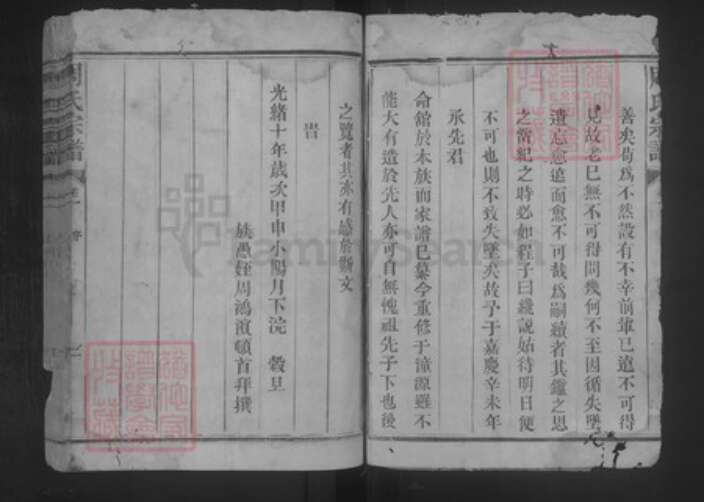 善矣苟為不然設有不幸前輩已遠不可得
見故老已無不可得問幾何不至因循失墜
遺忘愈遠而愈不可哉為嗣續者其鑑之思
之當紀之時必如程子曰纔說姑待明日便
不可也則不致失墜矣故予于嘉慶辛未年
承先君
命舘於本族而家譜已纂今重修于潼源雖不
能大有造於先人亦可自無愧祖先于下也後
之覽者其亦有感於斯文
旹
光緒十年歲次甲申小陽月下浣 穀旦
族愚姪周鴻濱頓首拜撰
周氏宗譜
周氏宗譜
FamilySearch